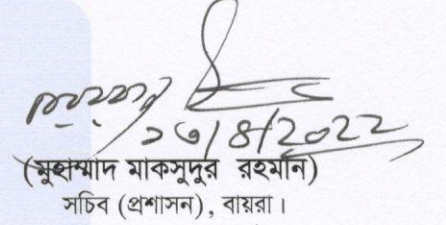 ২৩/৪/২০২২
(মুহাম্মাদ মাকসুদুর রহমান)
সচিব (প্রশাসন), বায়রা।